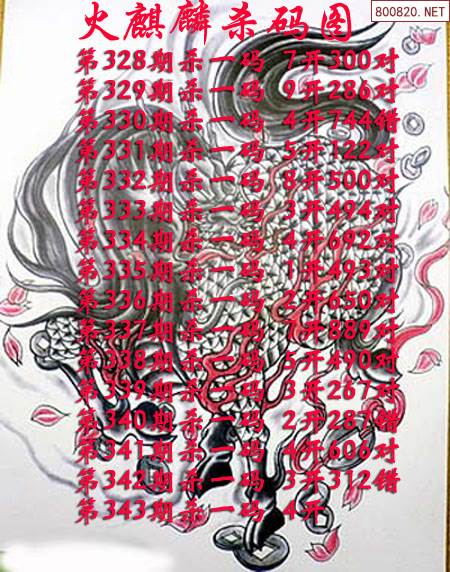 800820.NET
火麒麟杀码图
第328期杀一码 7开300对
第329期杀一码 9开286对
第330期杀一码 4开744错
第331期杀一码 5开122对
第332期杀一码 8开500对
第333期杀一码 3开494对
第334期杀一码 4开692对
第335期杀一码 1开493对
第336期杀一码 2开650对
第337期杀一码 7开889对
第338期杀一码 5开490对
第339期杀一码 3开267对
第340期杀一码 2开287错
第341期杀一码 4开606对
第342期杀一码 3开312错
第343期杀一码 4开